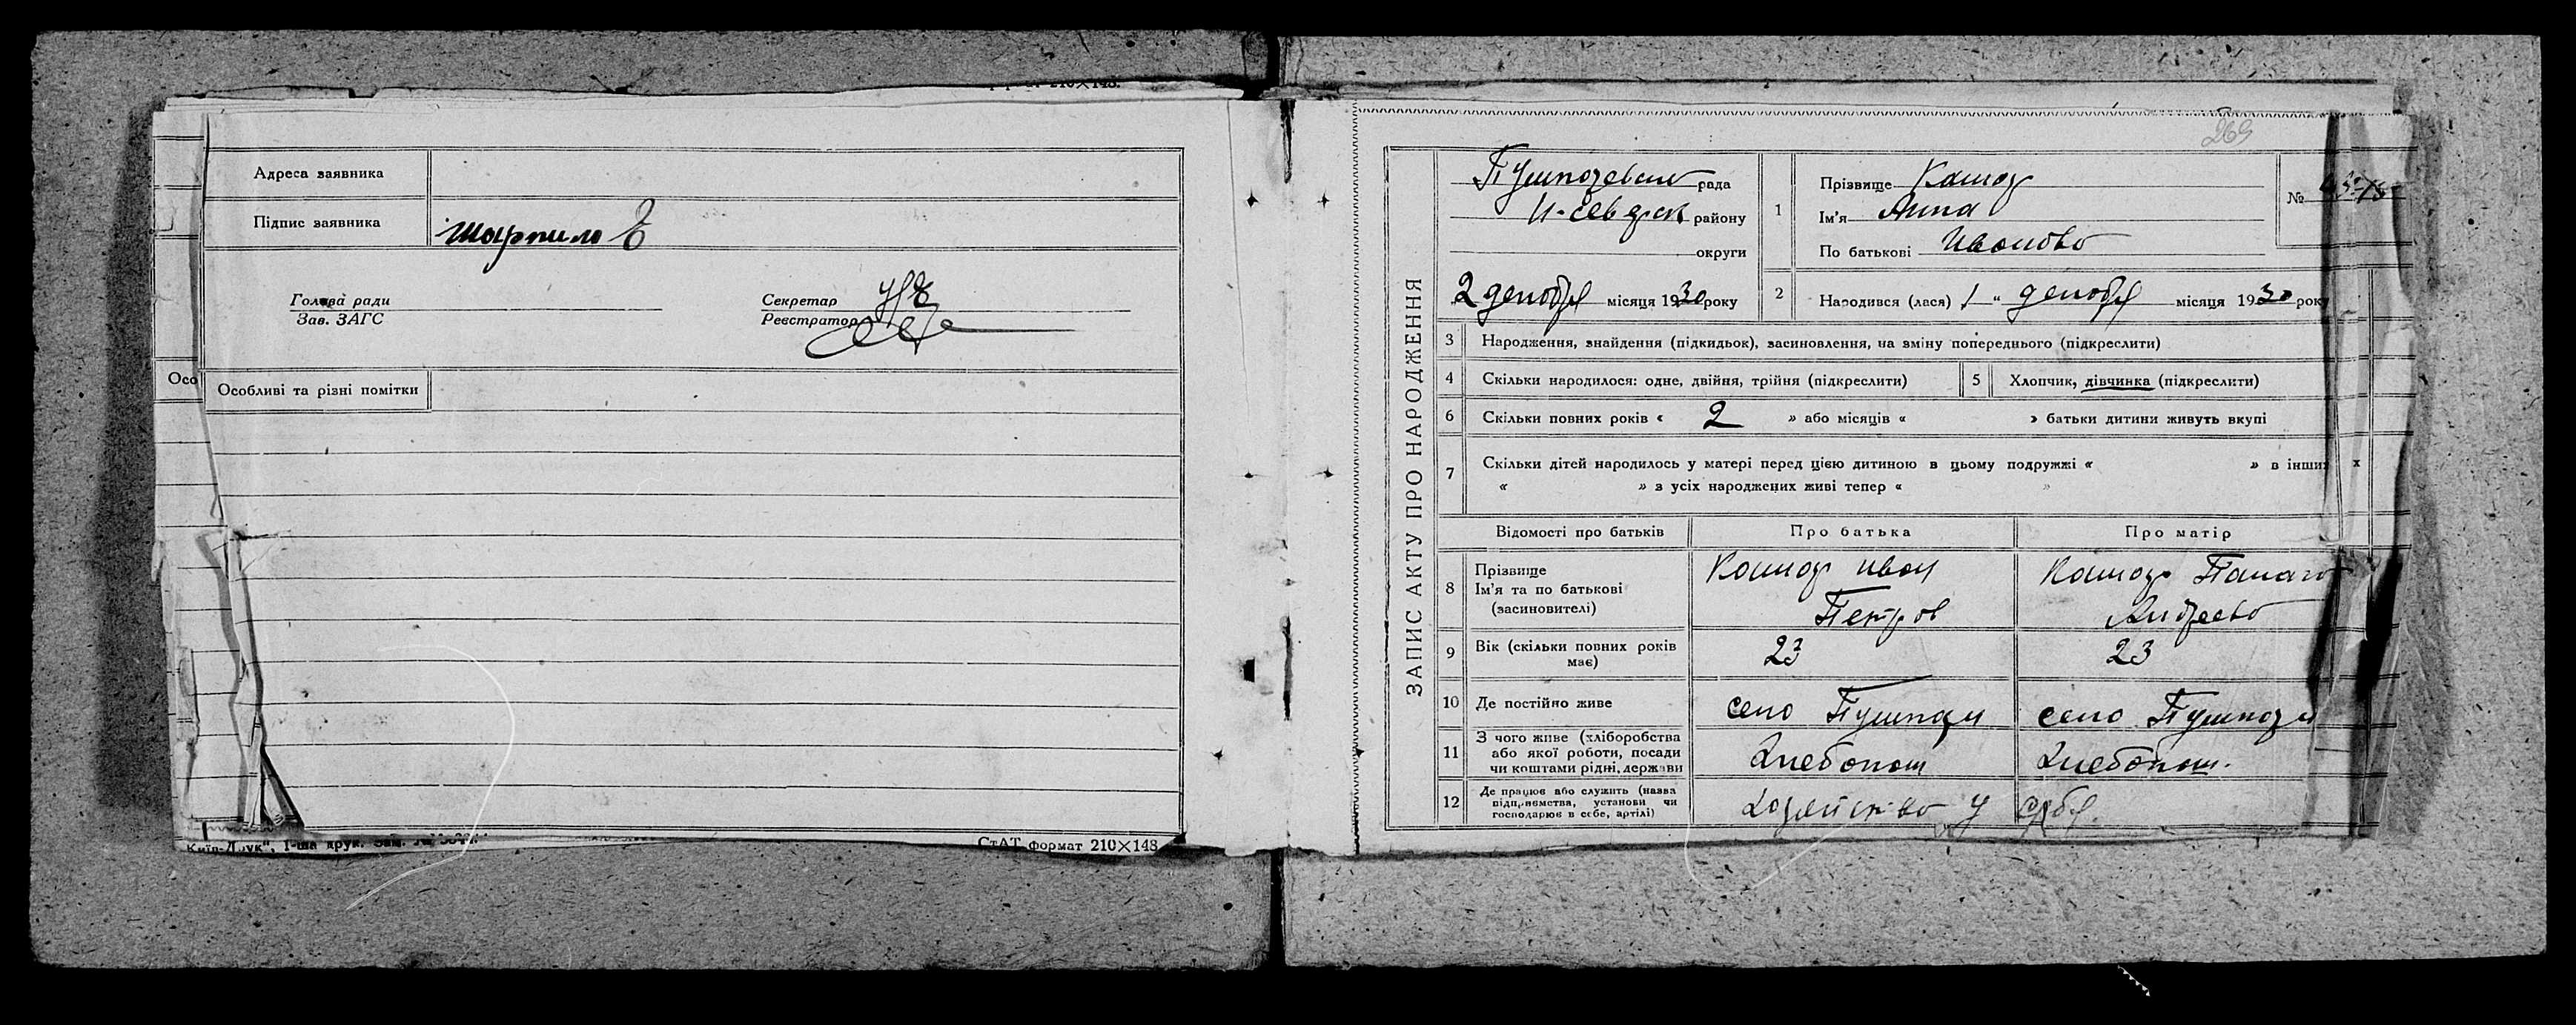 Адреса заявника
Підпис заявника
Шарпило Е
Голова ради
Зав. ЗАГС
Секретар
Реєстратор
Осо
Особливі та різні помітки
СтАТ формат 210×148
269
ЗАПИС АКТУ ПРО НАРОДЖЕННЯ
рада
району
округи
2 декабря місяця 1930 року
1
Прізвище Кашор
Ім'я Анна
По батькові Иваново
№
2
Народився (лася) 1 " декабря місяця 1930 року
3 Народження, знайдення (підкидьок), засиновлення, на зміну попереднього (підкреслити)
4 Скільки народилося: одне, двійня, трійня (підкреслити)
5 Хлопчик, дівчинка (підкреслити)
6 Скільки повних років « 2 » або місяців « » батьки дитини живуть вкупі
7 Скільки дітей народилось у матері перед цією дитиною в цьому подружжі « » в інших
« » з усіх народжених живі тепер « »
Відомості про батьків
Про батька
Про матір
8 Прізвище
Ім'я та по батькові
(засновителі)
Кашор Иван
Петров
Кашор
Андреево
9 Вік (скільки повних років
має)
23
23
10 Де постійно живе
село
село
11 З чого живе (хліборобства
або якої роботи, посади
чи коштами рідні, держави
Хлебопаш
Хлебопаш.
12 Де працює або служить (назва
підприємства, установи чи
господарює в себе, артілі)
Хозяйство у себя.